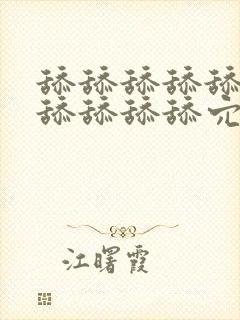 舔舔舔舔舔
舔舔舔舔
江曙霞